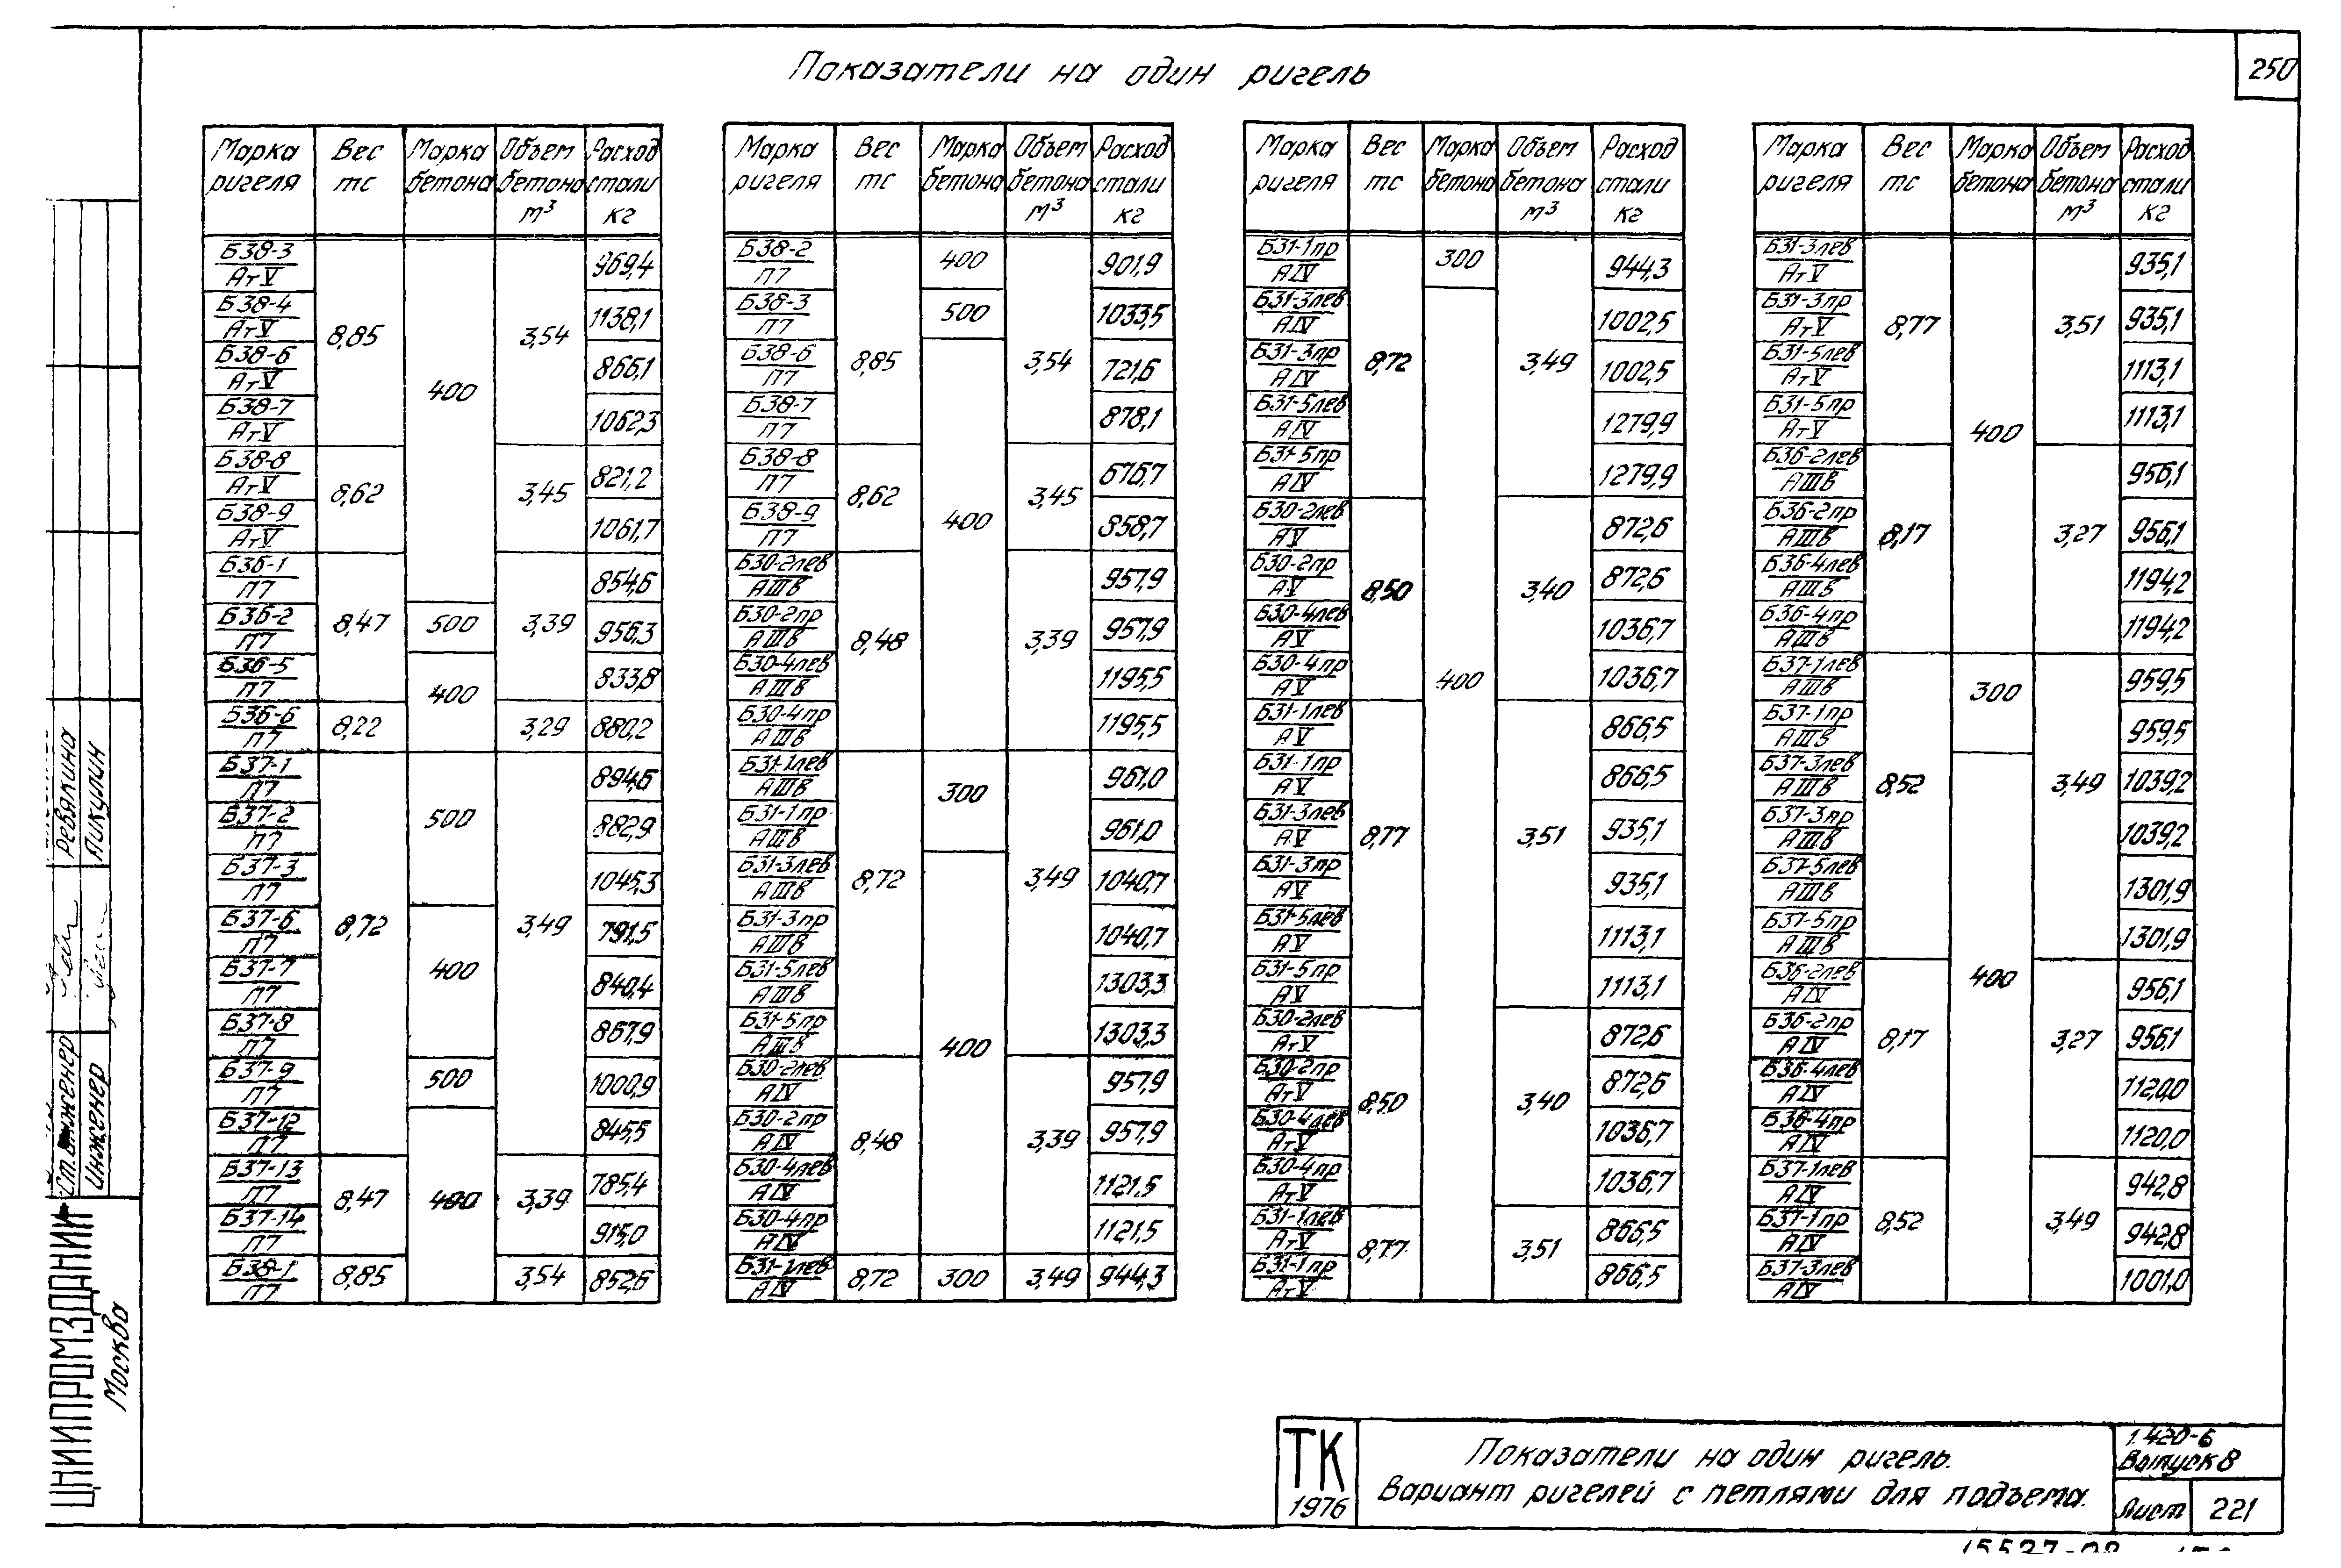 Показатели на один ригель
250
Марка ригеля | Вес тс | Марка бетона | Объем бетона м³ | Расход стали кг
Б38-3/АтV | 8,85 | 400 | 3,54 | 969,4
Б38-4/АтV | 1138,1
Б38-6/АтV | 866,1
Б38-7/АтV | 1062,3
Б38-8/АтV | 8,62 | 3,45 | 821,2
Б38-9/АтV | 1061,7
Б36-1/П7 | 8,47 | 3,39 | 854,6
Б36-2/П7 | 500 | 956,3
Б36-5/П7 | 400 | 833,8
Б36-6/П7 | 8,22 | 3,29 | 880,2
Б37-1/П7 | 8,72 | 500 | 3,49 | 894,6
Б37-2/П7 | 882,9
Б37-3/П7 | 1045,3
Б37-6/П7 | 400 | 791,5
Б37-7/П7 | 840,4
Б37-8/П7 | 867,9
Б37-9/П7 | 500 | 1000,9
Б37-12/П7 | 400 | 845,5
Б37-13/П7 | 8,47 | 3,39 | 785,4
Б37-14/П7 | 915,0
Б38-1/П7 | 8,85 | 3,54 | 852,6
Марка ригеля | Вес тс | Марка бетона | Объем бетона м³ | Расход стали кг
Б38-2/П7 | 8,85 | 400 | 3,54 | 901,9
Б38-3/П7 | 500 | 1033,5
Б38-6/П7 | 400 | 721,6
Б38-7/П7 | 878,1
Б38-8/П7 | 8,62 | 3,45 | 676,7
Б38-9/П7 | 858,7
Б30-2лев/АIIIв | 8,48 | 3,39 | 957,9
Б30-2пр/АIIIв | 957,9
Б30-4лев/АIIIв | 1195,5
Б30-4пр/АIIIв | 1195,5
Б31-1лев/АIIIв | 8,72 | 300 | 3,49 | 961,0
Б31-1пр/АIIIв | 961,0
Б31-3лев/АIIIв | 400 | 1040,7
Б31-3пр/АIIIв | 1040,7
Б31-5лев/АIIIв | 1303,3
Б31-5пр/АIIIв | 1303,3
Б30-2лев/АIV | 8,48 | 3,39 | 957,9
Б30-2пр/АIV | 957,9
Б30-4лев/АIV | 1121,5
Б30-4пр/АIV | 1121,5
Б31-1лев/АIV | 8,72 | 300 | 3,49 | 944,3
Марка ригеля | Вес тс | Марка бетона | Объем бетона м³ | Расход стали кг
Б31-1пр/АIV | 8,72 | 300 | 3,49 | 944,3
Б31-3лев/АIV | 400 | 1002,5
Б31-3пр/АIV | 1002,5
Б31-5лев/АIV | 1279,9
Б31-5пр/АIV | 1279,9
Б30-2лев/АV | 8,50 | 3,40 | 872,6
Б30-2пр/АV | 872,6
Б30-4лев/АV | 1036,7
Б30-4пр/АV | 1036,7
Б31-1лев/АV | 8,77 | 3,51 | 866,5
Б31-1пр/АV | 866,5
Б31-3лев/АV | 935,1
Б31-3пр/АV | 935,1
Б31-5лев/АV | 1113,1
Б31-5пр/АV | 1113,1
Б30-2лев/АтV | 8,50 | 3,40 | 872,6
Б30-2пр/АтV | 872,6
Б30-4лев/АтV | 1036,7
Б30-4пр/АтV | 1036,7
Б31-1лев/АтV | 8,77 | 3,51 | 866,5
Б31-1пр/АтV | 866,5
Марка ригеля | Вес тс | Марка бетона | Объем бетона м³ | Расход стали кг
Б31-3лев/АтV | 8,77 | 400 | 3,51 | 935,1
Б31-3пр/АтV | 935,1
Б31-5лев/АтV | 1113,1
Б31-5пр/АтV | 1113,1
Б36-2лев/АIIIв | 8,17 | 3,27 | 956,1
Б36-2пр/АIIIв | 956,1
Б36-4лев/АIIIв | 1194,2
Б36-4пр/АIIIв | 1194,2
Б37-1лев/АIIIв | 8,52 | 300 | 3,49 | 959,5
Б37-1пр/АIIIв | 959,5
Б37-3лев/АIIIв | 400 | 1039,2
Б37-3пр/АIIIв | 1039,2
Б37-5лев/АIIIв | 1301,9
Б37-5пр/АIIIв | 1301,9
Б36-2лев/АIV | 8,17 | 3,27 | 956,1
Б36-2пр/АIV | 956,1
Б36-4лев/АIV | 1120,0
Б36-4пр/АIV | 1120,0
Б37-1лев/АIV | 8,52 | 3,49 | 942,8
Б37-1пр/АIV | 942,8
Б37-3лев/АIV | 1001,0
Ревякина
Пикулин
Ст. инженер
Инженер
ЦНИИПРОМЗДАНИЙ
Москва
ТК
1976
Показатели на один ригель.
Вариант ригелей с петлями для подъема.
1.420-6
Выпуск 8
Лист 221